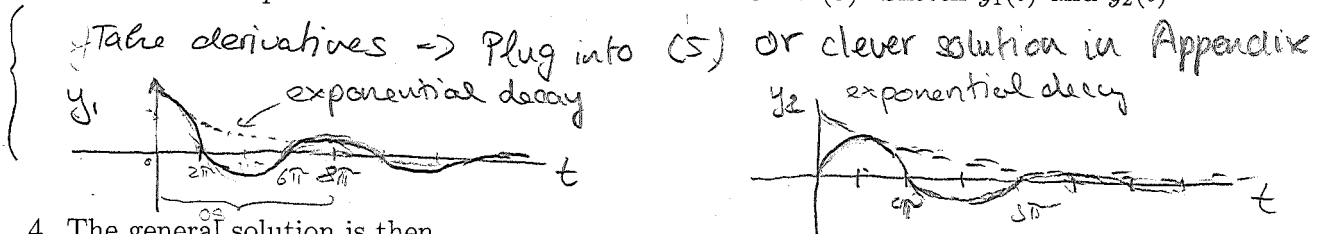 y₁(t) and y₂(t)
Take derivatives => Plug into (5) or clever solution in Appendix
y₁ exponential decay y₂ exponential decay
0 2π 6π 8π t 4π t
4. The general solution is then